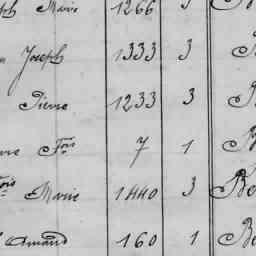 Marie 1266 3
Joseph 1333 3
Pierre 1233 3
Fois 7 1
Marie 1440 3
Amand 160 1